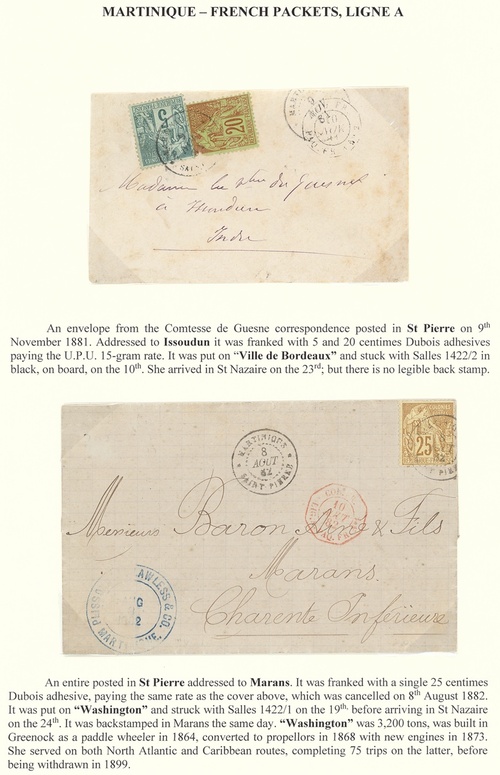 MARTINIQUE – FRENCH PACKETS, LIGNE A
5
20
à Issoudun
Indre
An envelope from the Comtesse de Guesne correspondence posted in St Pierre on 9th
November 1881. Addressed to Issoudun it was franked with 5 and 20 centimes Dubois adhesives
paying the U.P.U. 15-gram rate. It was put on “Ville de Bordeaux” and stuck with Salles 1422/2 in
black, on board, on the 10th. She arrived in St Nazaire on the 23rd; but there is no legible back stamp.
25
MARTINIQUE
8
AOUT
82
SAINT PIERRE
Messieurs Baron Ainé & Fils
Marans.
Charente Inférieure
An entire posted in St Pierre addressed to Marans. It was franked with a single 25 centimes
Dubois adhesive, paying the same rate as the cover above, which was cancelled on 8th August 1882.
It was put on “Washington” and struck with Salles 1422/1 on the 19th. before arriving in St Nazaire
on the 24th. It was backstamped in Marans the same day. “Washington” was 3,200 tons, was built in
Greenock as a paddle wheeler in 1864, converted to propellors in 1868 with new engines in 1873.
She served on both North Atlantic and Caribbean routes, completing 75 trips on the latter, before
being withdrawn in 1899.